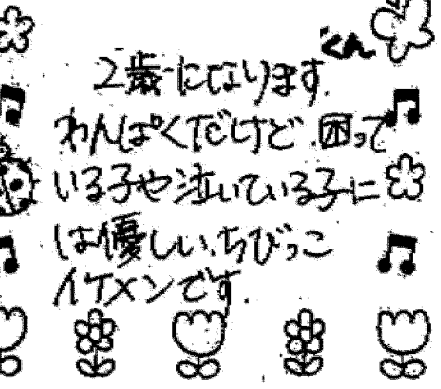 くん
2歳になります.
わんぱくだけど、困って
いる子や泣いている子に
は優しい、ちびっこ
イケメンです.